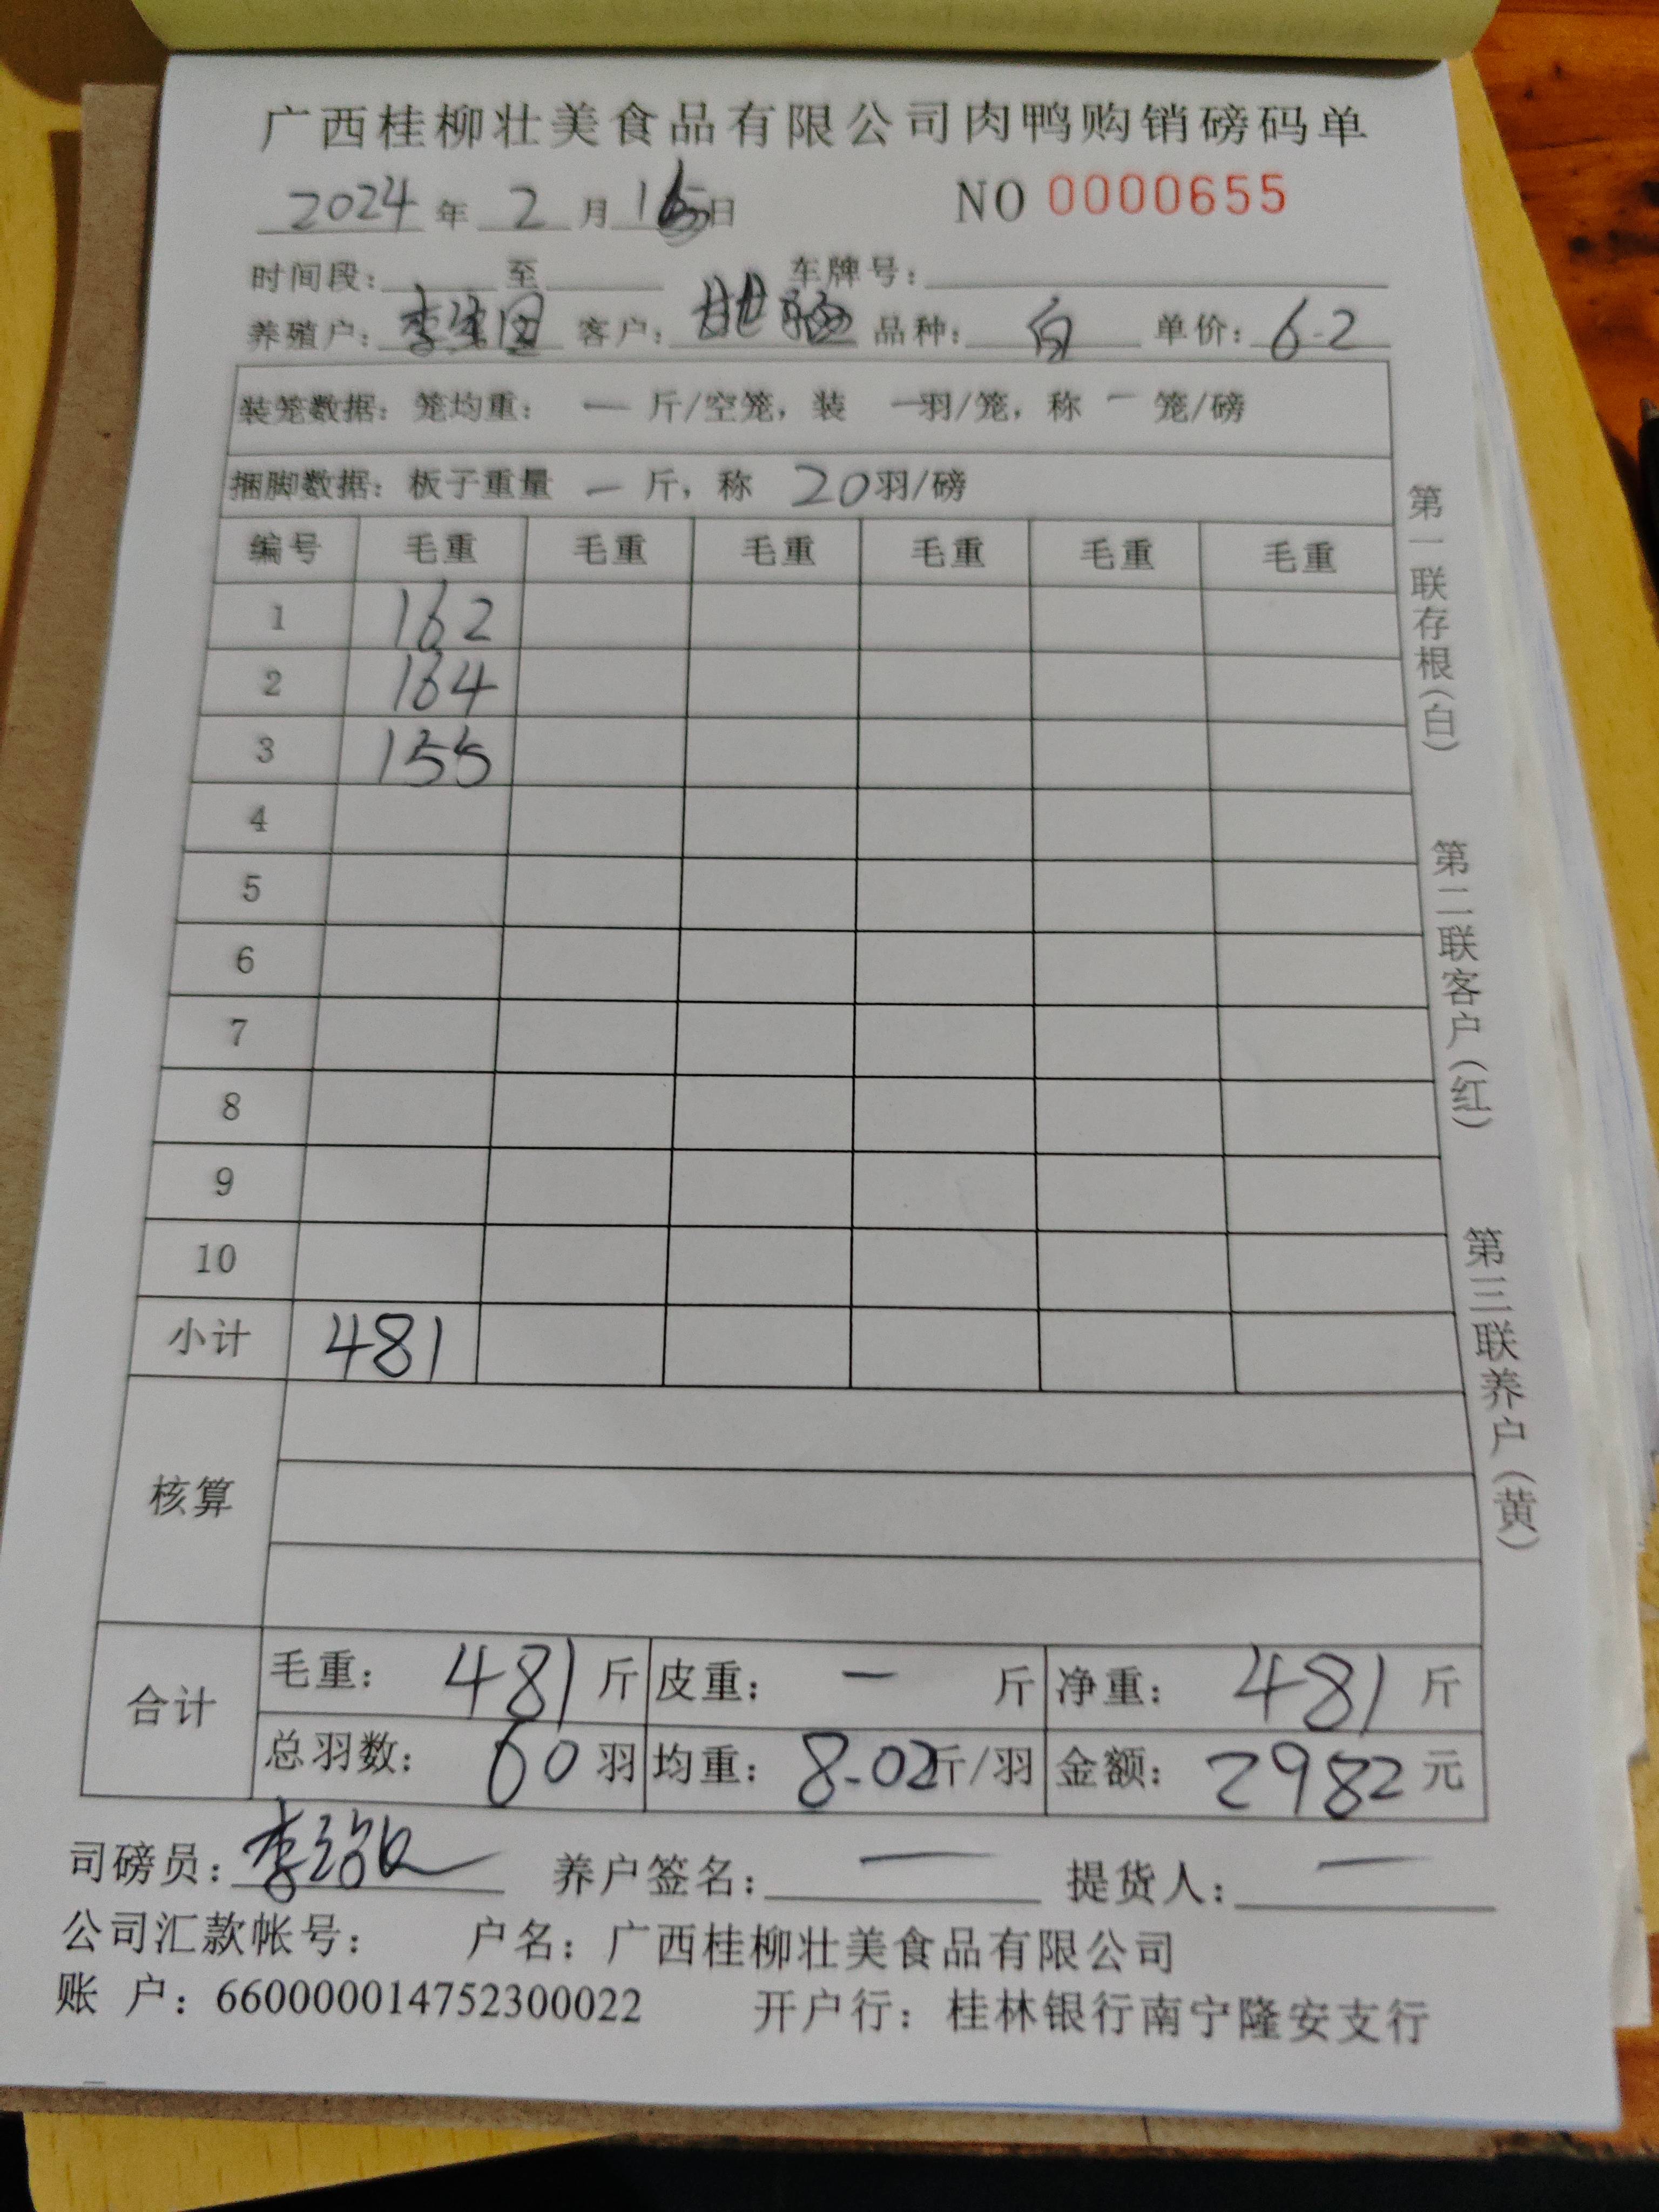 广西桂柳壮美食品有限公司肉鸭购销磅码单
2024年 2月 日 NO 0000655
时间段: 至 车牌号:
养殖户: 李 客户: 品种: 白 单价: 6.2
装笼数据: 笼均重: — 斤/空笼, 装 — 羽/笼, 称 — 笼/磅
捆脚数据: 板子重量 — 斤, 称 20羽/磅
编号 毛重 毛重 毛重 毛重 毛重 毛重
1 162
2 164
3 155
4
5
6
7
8
9
10
小计 481
核算
合计 毛重: 481 斤 皮重: — 斤 净重: 481 斤
总羽数: 60 羽 均重: 8.02斤/羽 金额: 2982 元
司磅员: 李 养户签名: — 提货人: —
公司汇款帐号: 户名: 广西桂柳壮美食品有限公司
账 户: 660000014752300022 开户行: 桂林银行南宁隆安支行
第一联存根(白)
第二联客户(红)
第三联养户(黄)